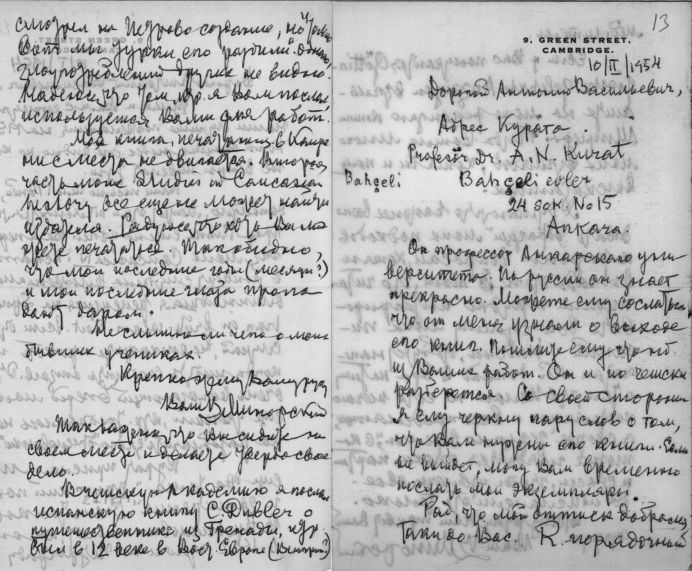 13
9. GREEN STREET,
CAMBRIDGE.
10/II/1954
Дорогой Антоний Васильевич,
Адрес Курата
Profesör Dr. A. N. Kurat
Bahçeli Bahçeli evler
24 sok. No 15
Ankara.
Он профессор Анкарского уни
верситета. По русски он знает
прекрасно. Можете ему сослаться
что от меня узнали о выходе
его книг. Пошлите ему что ниб
из Ваших работ. Он и по чешски
разберется. Со своей стороны
я ему черкну пару слов о том,
что Вам нужны его книги. Если
не вышлет, могу Вам временно
послать мои экземпляры.
Рад, что мой оттиск добрался
таки до Вас. R. порядочный
смотрел на Петрово создание, но
Вот мы дураки его
злоупотреблений других не видно.
Надеюсь, что чем, что я Вам послал,
используется Вами для работ.
Моя книга, печатающаяся в Каире
ни с места не двигается. Вторая
часть моих Studies in Caucasian
history все еще не может найти
издателя. Радуюсь что хоть Вам
печататься. Так обидно,
что мои последние годы (месяцы?)
и мои последние глаза пропа
дают даром.
Не слышно ли чего о моих
бывших учениках.
Крепко жму Вашу руку
Ваш В. Минорский
Так что Вы сидите на
своем месте и делаете твердо свое
дело.
В чешскую Академию я послал
испанскую книгу C. Dubler о
путешественнике из Гренады, кот.
был в 12 веке в Вост. Европе (Венгрии)